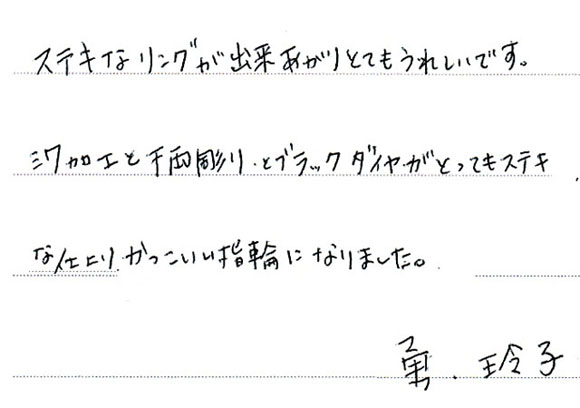 ステキなリングが出来あがりとてもうれしいです。
ミワ加工と千両彫り.とブラックダイヤ.がとってもステキ
な仕上り.かっこいい指輪になりました。
勇.玲子